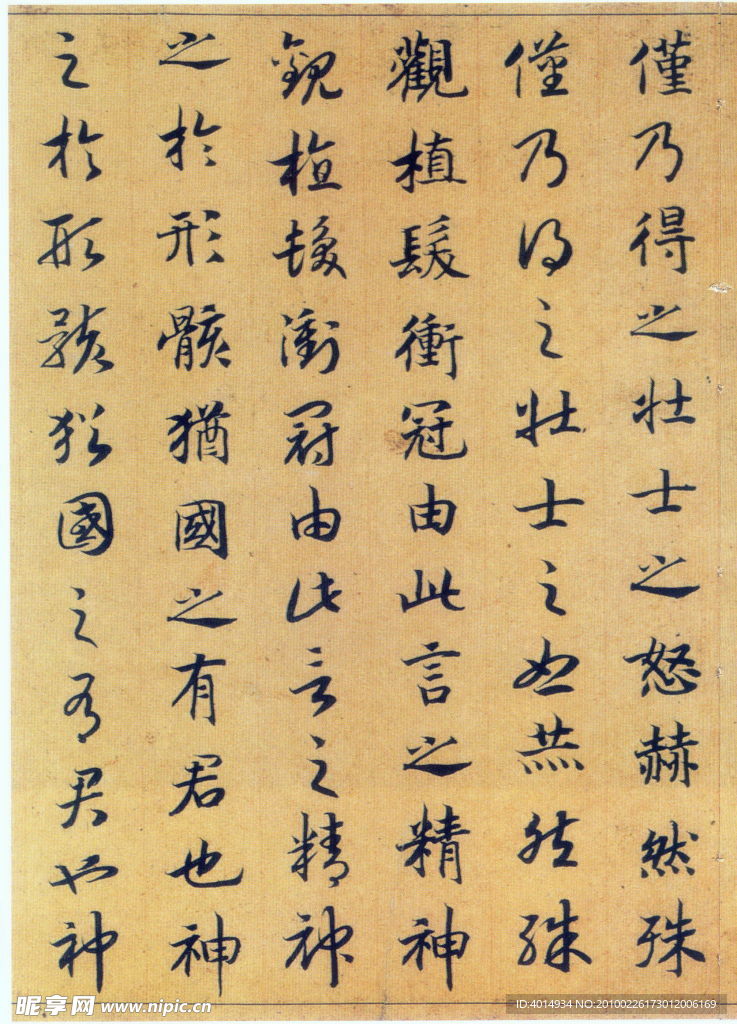 僅乃得之壯士之怒赫然殊
僅乃得之壯士之怒赫然殊
觀植髮衝冠由此言之精神
觀植髮衝冠由此言之精神
之於形骸猶國之有君也神
之於形骸猶國之有君也神
昵享网 www.nipic.cn
ID:4014934 NO:20100226173012006169